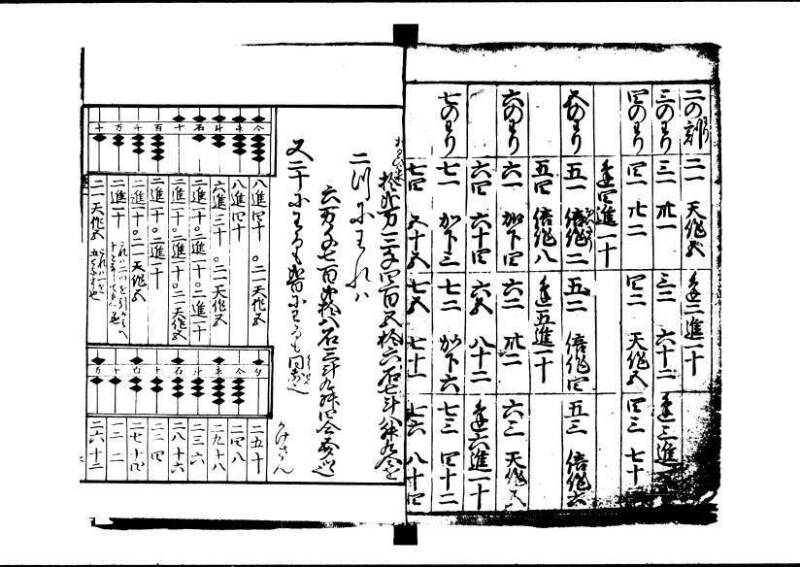 二の割 二一 天作五 逢二進一十
三のわり 三一 卅一 三二 六十二 逢三進一
四のわり 四一 廿二 四二 天作五 四三 七十
逢四進一十
五のわり 五一 倍作二 五二 倍作四 五三 倍作六
五四 倍作八 逢五進一十
六のわり 六一 加下四 六二 卅二 六三 天作五
六四 六十四 六五 八十二 逢六進一十
七のわり 七一 加下三 七二 加下六 七三 四十二
七四 五十五 七五 七十一 七六 八十四
拾弐万三千四百五拾六石七斗八升九合を
二つにわれハ
六万千七百弐拾八石三斗九升四合五夕
又二十にわるも皆にわるも同前
かけさん
合 升 斗 石 十 百 千 万 十
八進四十〇二一天作五
八進四十
六進三十〇二一天作五
二進一十〇二進一十
二進一十〇二一天作五
二進一十〇二進一十
二進一十〇二一天作五
二進一十
二一天作五
夕 合 升 斗 石 十 百 千 万
二五十
二四八
二九十八
二三六
二八十六
二二四
二七十四
一二二
二六十二